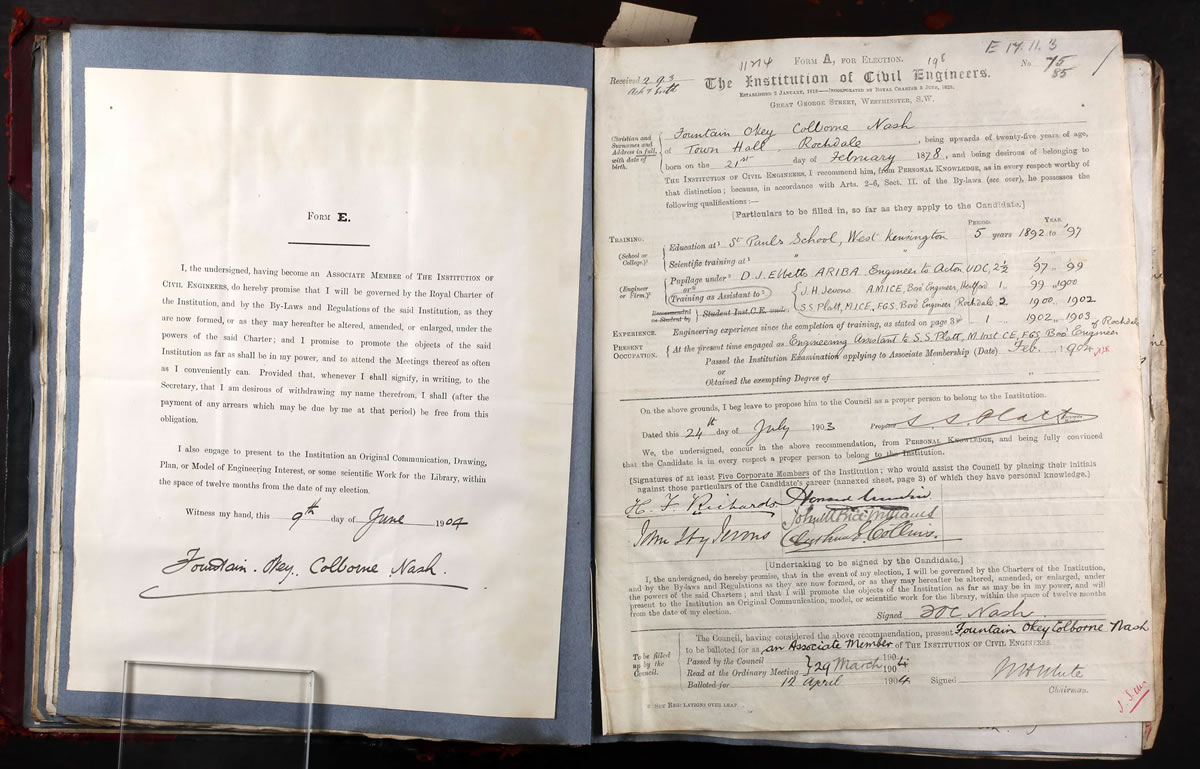 FORM E.
I, the undersigned, having become an ASSOCIATE MEMBER of THE INSTITUTION OF
CIVIL ENGINEERS, do hereby promise that I will be governed by the Royal Charter of
the Institution, and by the By-Laws and Regulations of the said Institution, as they
are now formed, or as they may hereafter be altered, amended, or enlarged, under the
powers of the said Charter; and I promise to promote the objects of the said
Institution as far as shall be in my power, and to attend the Meetings thereof as often
as I conveniently can. Provided that, whenever I shall signify, in writing, to the
Secretary, that I am desirous of withdrawing my name therefrom, I shall (after the
payment of any arrears which may be due by me at that period) be free from this
obligation.
I also engage to present to the Institution an Original Communication, Drawing,
Plan, or Model of Engineering Interest, or some scientific Work for the Library, within
the space of twelve months from the date of my election.
Witness my hand, this 9th day of June 1904
Fountain Okey Colborne Nash.
E 17.11.3
1174 FORM A, FOR ELECTION. 198
No. 75
85
Received 2.9.3
The Institution of Civil Engineers.
ESTABLISHED 2 JANUARY, 1818—INCORPORATED BY ROYAL CHARTER 3 JUNE, 1828.
GREAT GEORGE STREET, WESTMINSTER, S.W.
Christian and
Surnames and
Address in full,
with date of
birth.
Fountain Okey Colborne Nash
of Town Hall Rochdale, being upwards of twenty-five years of age,
born on the 21st day of February 1878, and being desirous of belonging to
THE INSTITUTION OF CIVIL ENGINEERS, I recommend him, from PERSONAL KNOWLEDGE, as in every respect worthy of
that distinction; because, in accordance with Arts. 2–6, Sect. II. of the By-laws (see over), he possesses the
following qualifications:—
[Particulars to be filled in, so far as they apply to the Candidate.]
PERIOD. YEAR.
TRAINING.
(School or
College.)
Education at St Pauls School, West Kensington 5 years 1892 to '97
Scientific training at " "
(Engineer
or Firm.)
Pupilage under D. J. Ebbetts ARIBA. Engineer to Acton UDC, 2½ '97 .. 99
or
Training as Assistant to
J. H. Jevons A.M.ICE, Boro Engineer, Hertford 1 .. 99 .. 1900
S.S. Platt, M.ICE, F.G.S, Boro Engineer Rochdale 2 1900 .. 1902
Recommended
as Student by
Student Inst.C.E. under
EXPERIENCE. Engineering experience since the completion of training, as stated on page 3 1 .. 1902 .. 1903
PRESENT
OCCUPATION.
At the present time engaged as Engineering Assistant to S.S. Platt, M.Inst.CE, FGS Boro Engineer of Rochdale
Passed the Institution Examination applying to Associate Membership (Date) Feb. 1904
or
Obtained the exempting Degree of
On the above grounds, I beg leave to propose him to the Council as a proper person to belong to the Institution.
Dated this 24th day of July 1903 Proposer S. S. Platt
We, the undersigned, concur in the above recommendation, from PERSONAL KNOWLEDGE, and being fully convinced
that the Candidate is in every respect a proper person to belong to the Institution.
[Signatures of at least Five Corporate Members of the Institution; who would assist the Council by placing their initials
against those particulars of the Candidate's career (annexed sheet, page 3) of which they have personal knowledge.]
H. F. Richards
John Hy Jevons
Arthur E. Collins.
[Undertaking to be signed by the Candidate.]
I, the undersigned, do hereby promise that, in the event of my election, I will be governed by the Charters of the Institution,
and by the By-laws and Regulations as they are now formed, or as they may hereafter be altered, amended, or enlarged, under
the powers of the said Charters; and that I will promote the objects of the Institution as far as may be in my power, and will
present to the Institution an Original Communication, model, or scientific work for the library, within the space of twelve months
from the date of my election.
Signed FOC Nash.
To be filled
up by the
Council.
The Council, having considered the above recommendation, present Fountain Okey Colborne Nash
to be balloted for as an Associate Member of THE INSTITUTION OF CIVIL ENGINEERS.
Passed by the Council 1904
Read at the Ordinary Meeting 29 March 1904
Balloted for 12 April 1904 Signed W H White
Chairman.
SEE REGULATIONS OVER LEAF